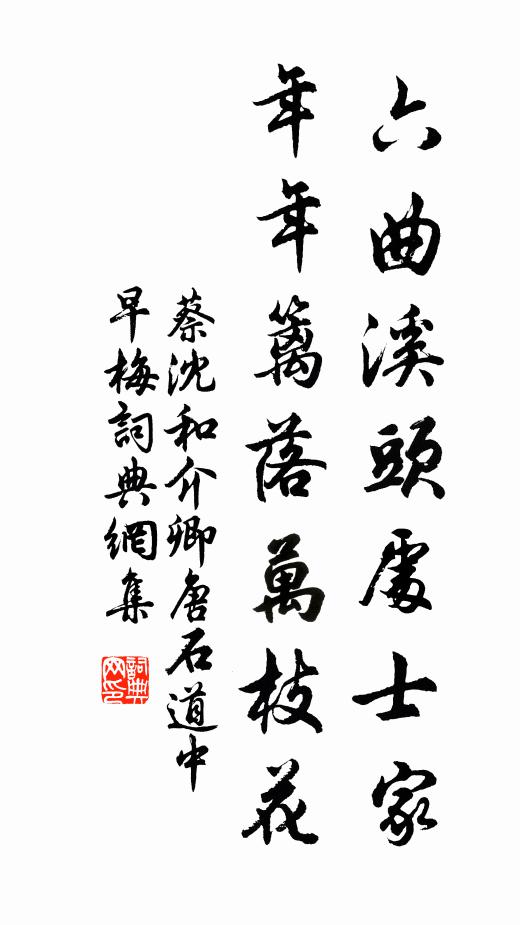 六曲溪頭處士家
年年籬落萬枝花
蔡沈和介卿唐石道中
早梅詞典網集
詞典网印